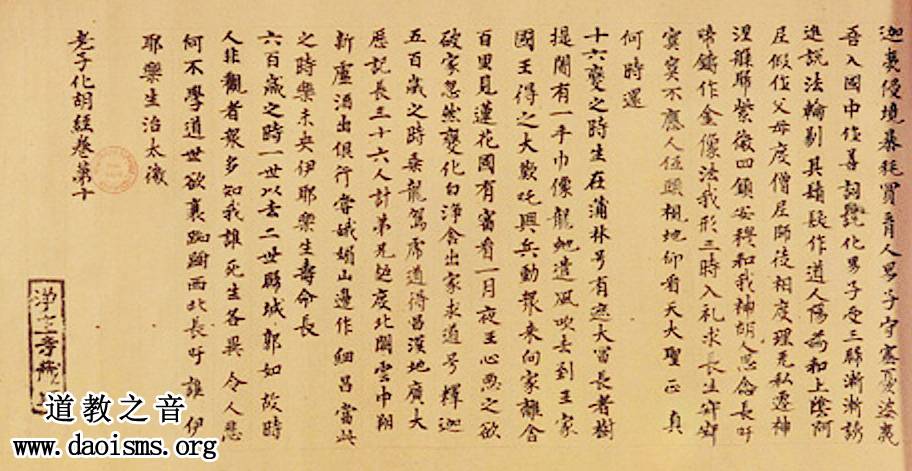 迦夷侵境暴耗買育人男子守塞憂婆夷
吾入國中作善詞說化男子受三歸漸漸誘
進說法輪剔其鬚髮作道人陽為和上陰阿
尼假作父母度僧尼師徒相度理无私遷神
涅槃歸紫微四鎮安穩和我神胡人思念長吁
啼鑄作金像法我形三時入礼求長生寂寂
寞寞不應人低眼視地仰看天大聖正真
何時還
十六變之時生在蒲林号有遮大富長者樹
提閣有一手巾像龍虵遣風吹去到王家
國王得之大歡咤興兵動眾来向家離舍
百里見蓮花國有審看一月夜王心惡之欲
破家忽然變化白淨舍出家求道号釋迦
五百歲之時乘龍駕虎道得昌漢地廣大
歷記長三十六人計弟兄延度北闕雲中翔
新盧酒出俱行常娥媚山邊作細昌當此
之時樂未央伊耶樂生壽命長
六百歲之時一世以去二世歸城郭如故時
人非觀者眾多知我誰死生各異令人悲
何不學道世欲衰踟蹰西北長吁誰伊
耶樂生治太微
老子化胡經卷第十
淨土寺藏經
道教之音
www.daoisms.org